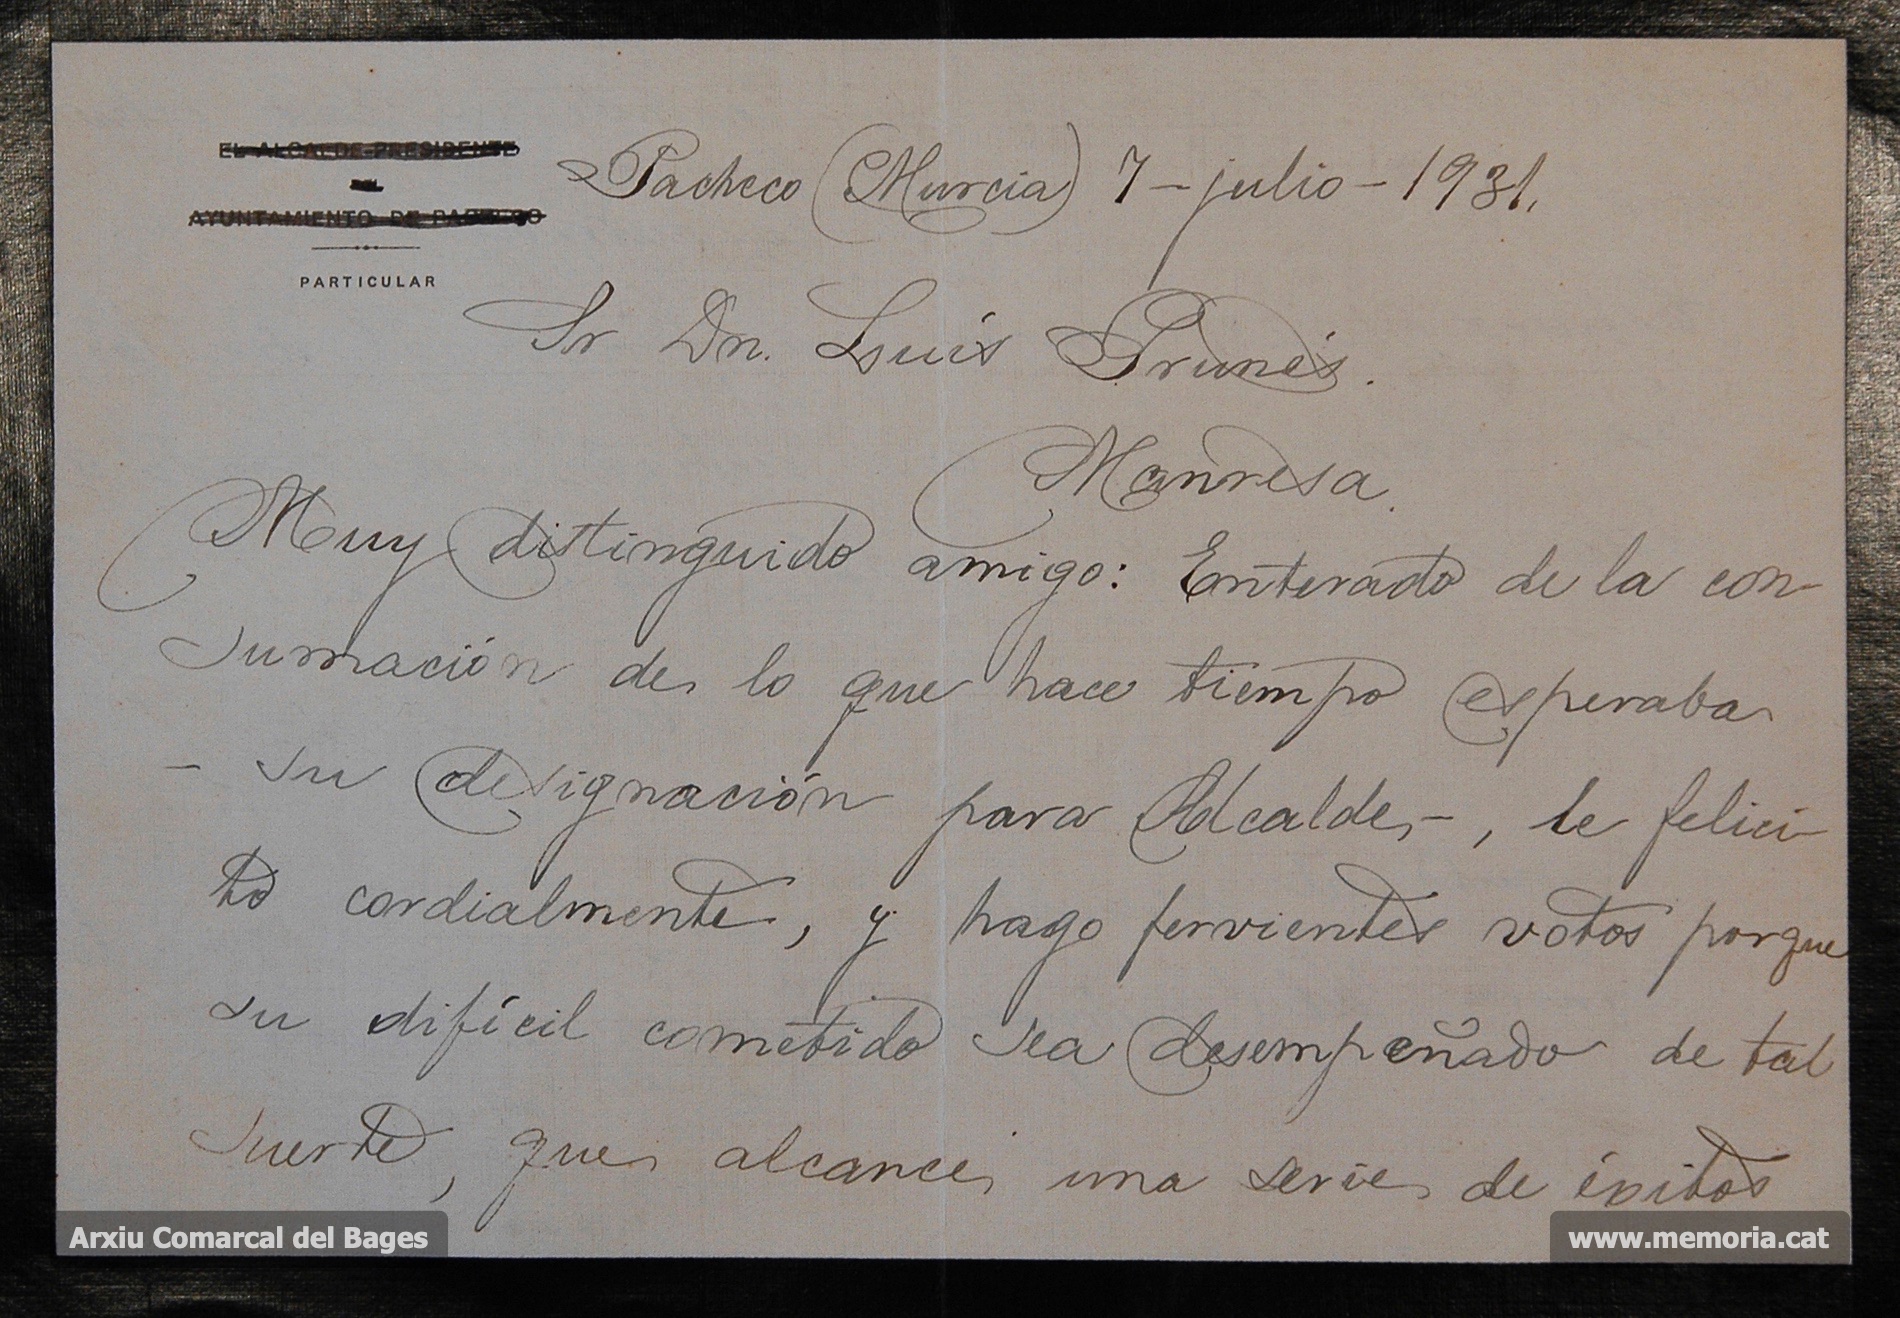 EL ALCALDE-PRESIDENTE
DEL
AYUNTAMIENTO DE PACHECO
PARTICULAR
Pacheco (Murcia) 7-julio-1931.
Sr Dn. Luís Prunés.
Manresa.
Muy distinguido amigo: Enterado de la con-
sumación de lo que hace tiempo esperaba
- su designación para Alcalde -, le felici-
to cordialmente, y hago fervientes votos porque
su difícil cometido sea desempeñado de tal
suerte, que alcance una serie de éxitos
Arxiu Comarcal del Bages
www.memoria.cat